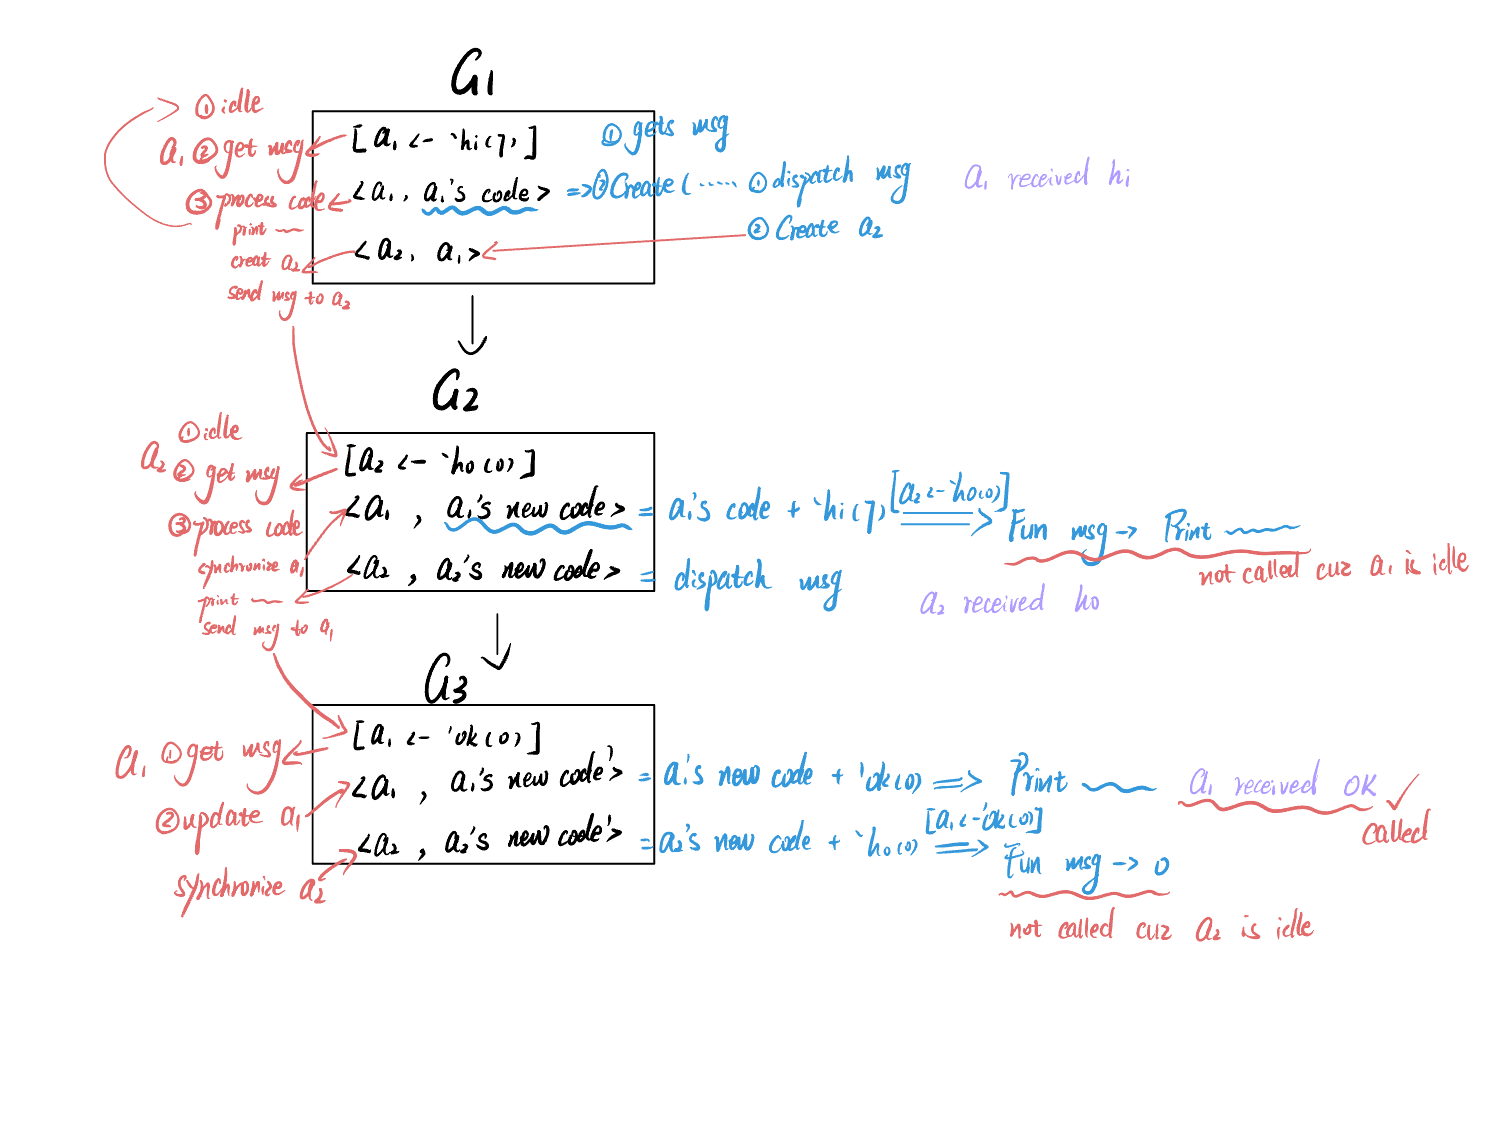 G1
① idle
a1 ② get msg
③ process code
print
creat a2
send msg to a2
[a1 <- `hi(7)]
<a1, a1's code>
<a2, a1>
① gets msg
=> ② Create (...... ① dispatch msg
② Create a2
a1 received hi
G2
① idle
a2 ② get msg
③ process code
synchronize a1
print
send msg to a1
[a2 <- `ho(0)]
<a1, a1's new code> = a1's code + `hi(7) [a2 <- `ho(0)] => Fun msg -> Print
not called cuz a1 is idle
<a2, a2's new code> = dispatch msg
a2 received ho
G3
a1 ① get msg
② update a1
synchronize a2
[a1 <- 'ok(0)]
<a1, a1's new code'> = a1's new code + 'ok(0) => Print
a1 received OK ✓
called
<a2, a2's new code'> = a2's new code + `ho(0) [a1 <- 'ok(0)] => Fun msg -> 0
not called cuz a2 is idle